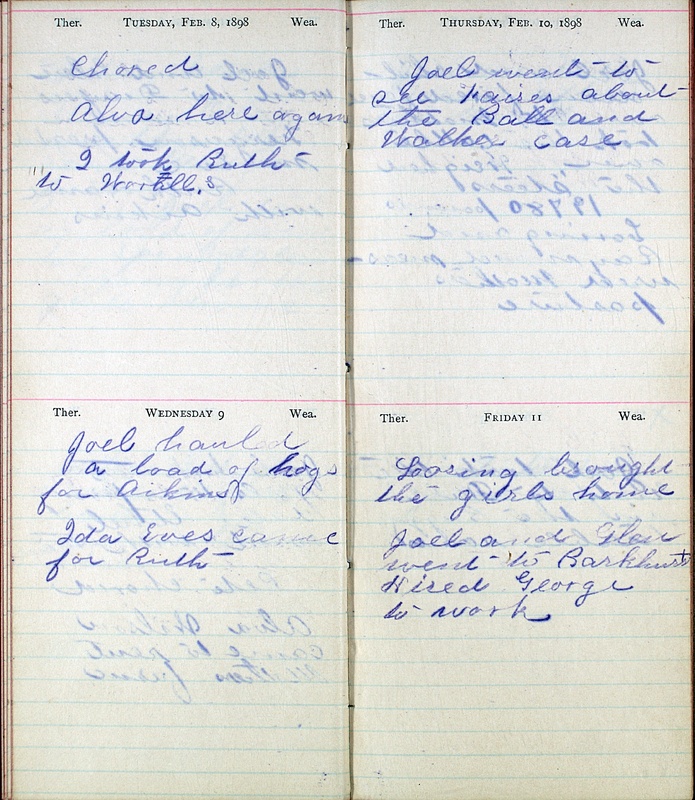 Ther. Tuesday, Feb. 8, 1898 Wea.
Chored
Alva here again
I took Ruth
to Worsell,s
Ther. Wednesday 9 Wea.
Joel hauled
a load of hogs
for Aikins
Ida Eves came
for Ruth
Ther. Thursday, Feb. 10, 1898 Wea.
Joel went to
see Kaises about
the Ball and
Walker case
Ther. Friday 11 Wea.
Loosing brought
the girls home
Joel and Glen
went to Barkhurst
Hired George
to work